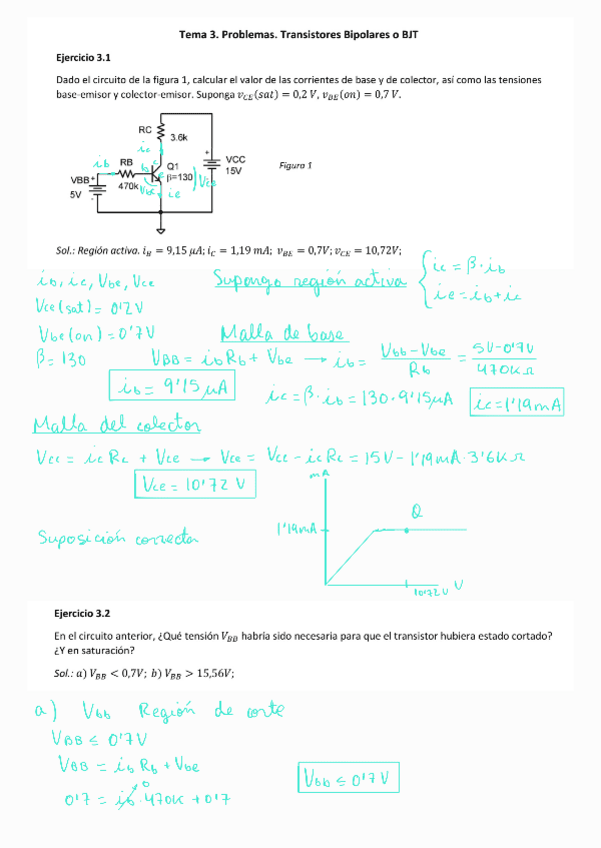 Tema 3. Problemas. Transistores Bipolares o BJT
Ejercicio 3.1
Dado el circuito de la figura 1, calcular el valor de las corrientes de base y de colector, así como las tensiones
base-emisor y colector-emisor. Suponga v_CE(sat) = 0,2 V, v_BE(on) = 0,7 V.
RC
3.6k
ic
ib
RB
470k
b
c
e
Q1
β=130
Vbe
Vce
ie
VCC
15V
VBB
5V
Figura 1
Sol.: Región activa. i_B = 9,15 μA; i_C = 1,19 mA; v_BE = 0,7V; v_CE = 10,72V;
ib, ic, Vbe, Vce
Supongo región activa
{ ic = β·ib
ie = ib + ic
Vce(sat) = 0'2V
Vbe(on) = 0'7V
Malla de base
β = 130
VBB = ib Rb + Vbe → ib = (Vbb - Vbe)/Rb = (5V - 0'7V)/(470K Ω)
ib = 9'15 μA
ic = β·ib = 130·9'15μA
ic = 1'19mA
Malla del colector
Vcc = ic Rc + Vce → Vce = Vcc - ic Rc = 15V - 1'19mA·3'6K Ω
Vce = 10'72 V
Suposición correcta
mA
Q
1'19mA
10'72V
V
Ejercicio 3.2
En el circuito anterior, ¿Qué tensión V_BB habría sido necesaria para que el transistor hubiera estado cortado?
¿Y en saturación?
Sol.: a) V_BB < 0,7V; b) V_BB > 15,56V;
a) Vbb Región de corte
VBB ≤ 0'7V
VBB = ib Rb + Vbe
Vbb ≤ 0'7V
0
0'7 = ib·470K + 0'7